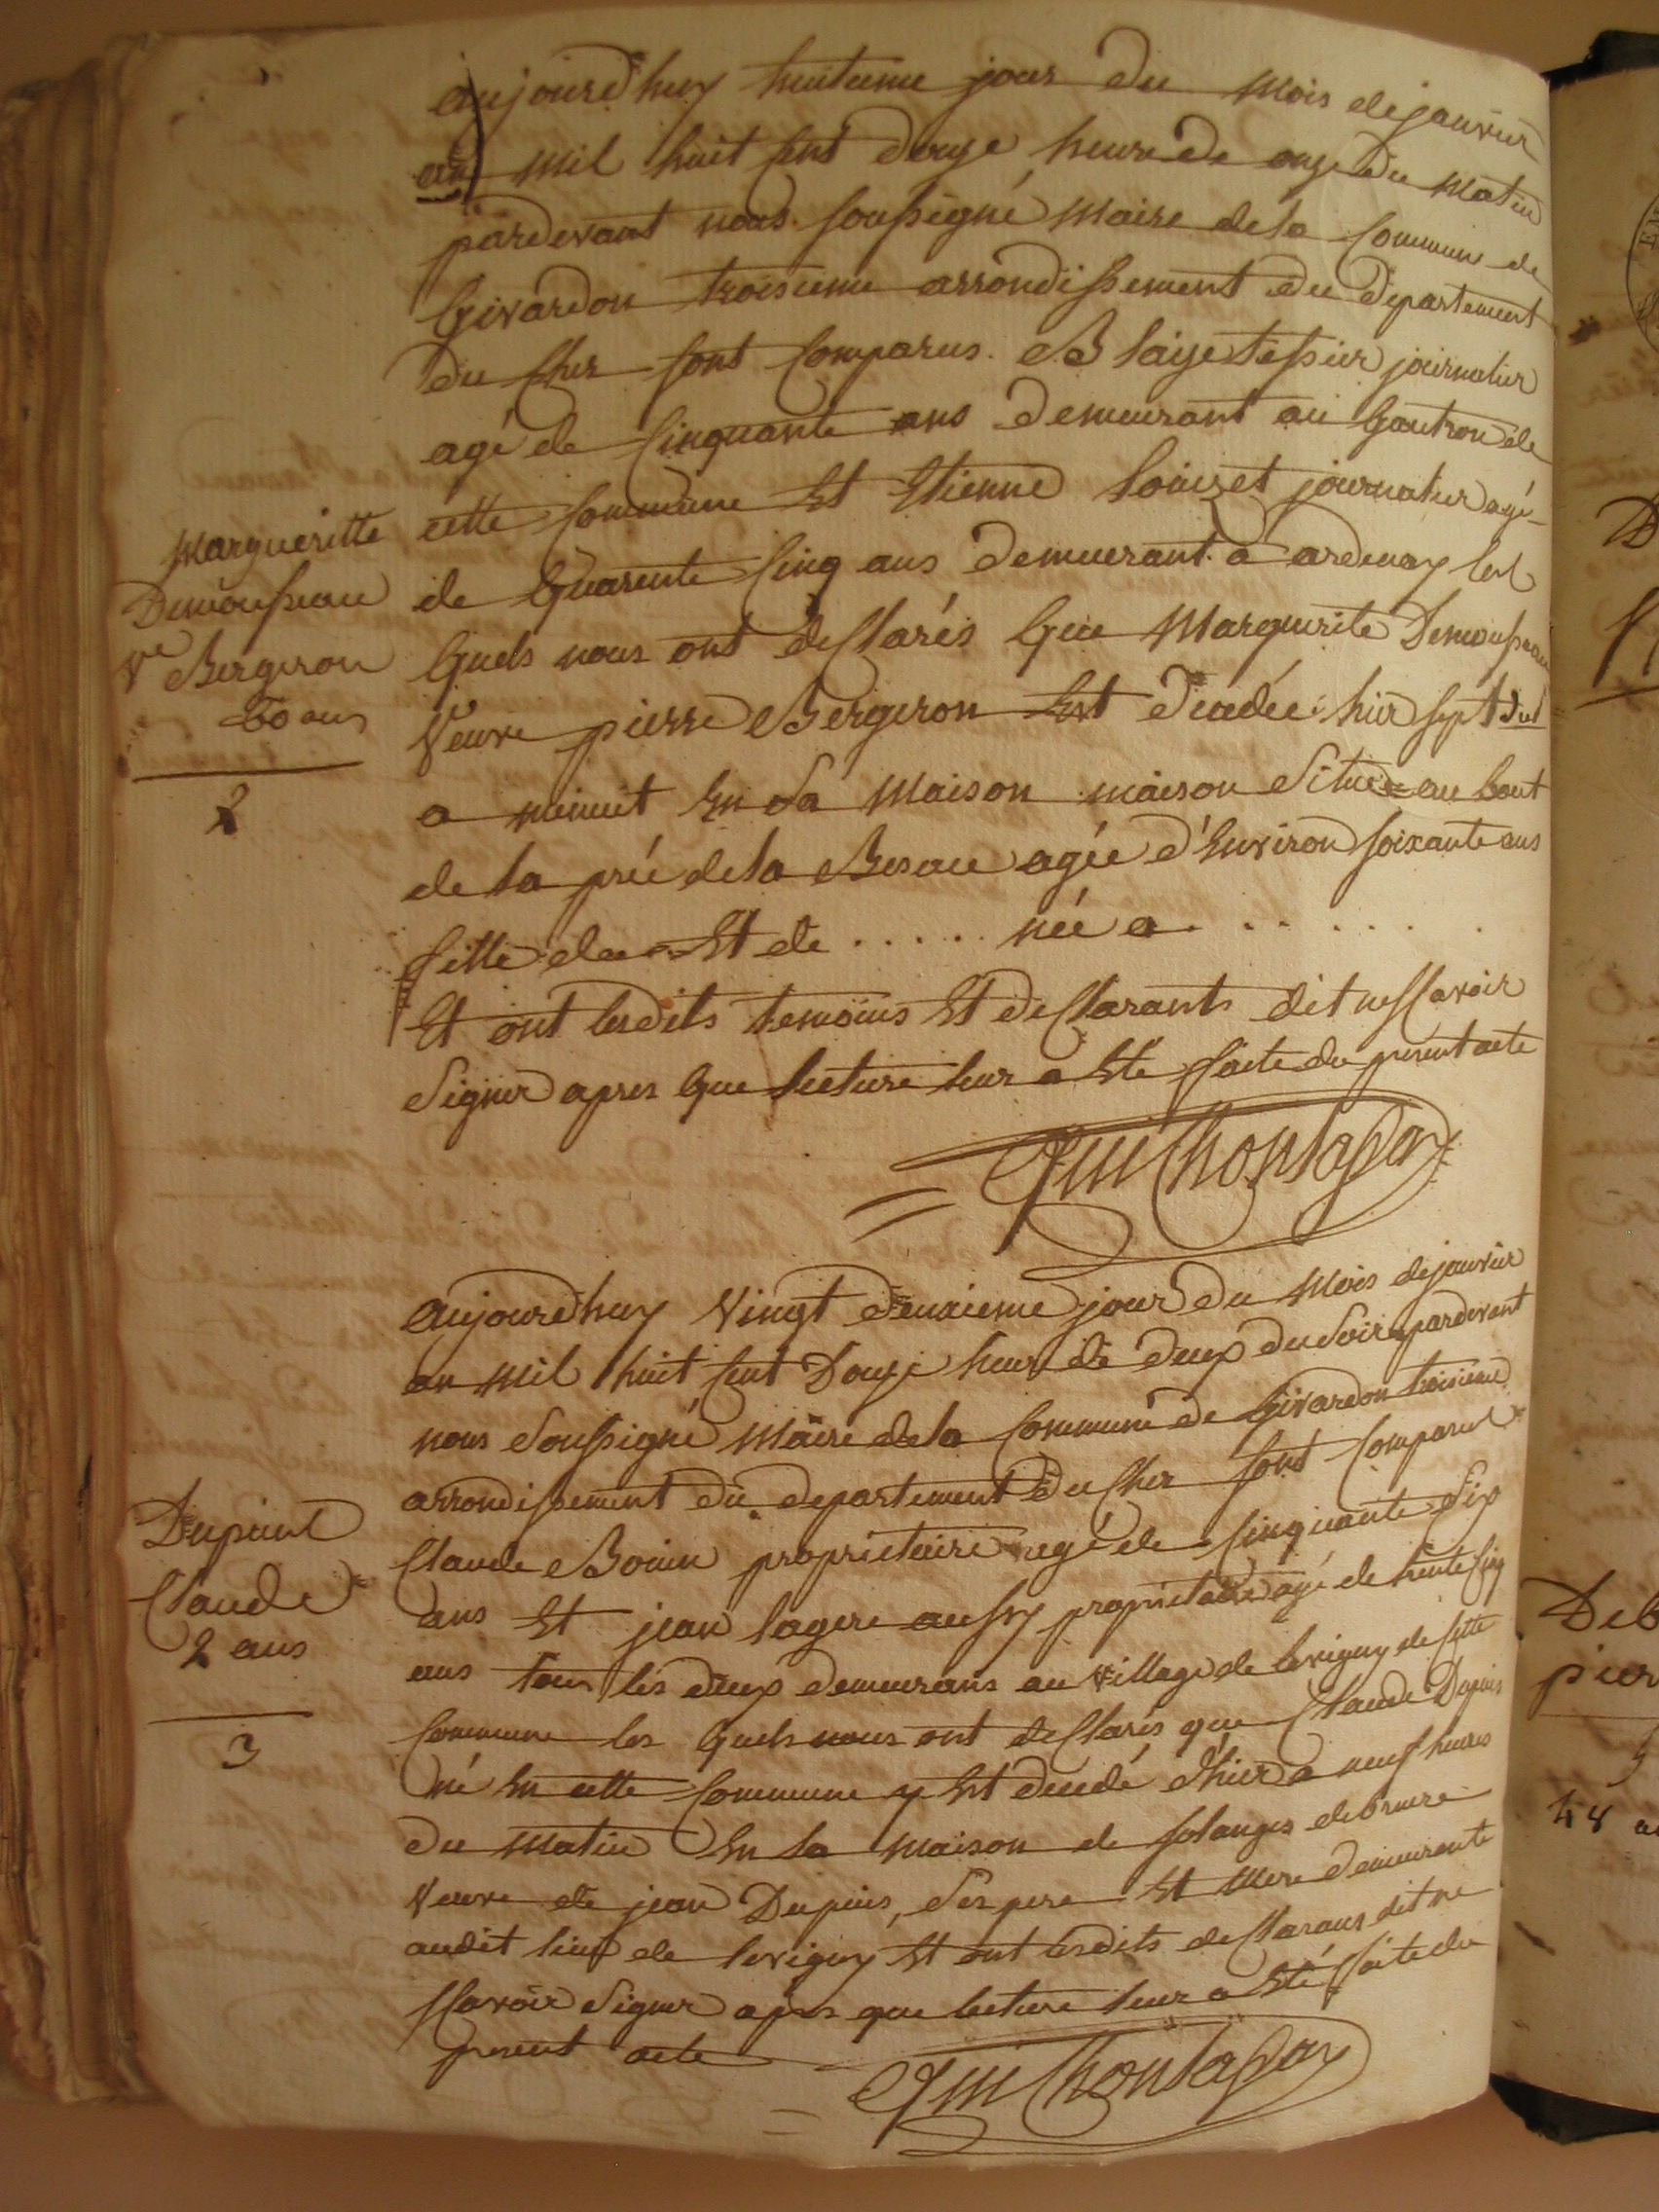 aujourdhuy huitieme jour du mois de janvier
an mil huit sent douze heure de onze du matin
pardevant nous soussigné maire de la Commune de
Givardon troisieme arrondissement du departement
du Cher sont Comparus Blaize tessier journalier
agé de Cinquante ans demeurant au Gautron de
cette Commune Et Etienne Loiuzet journalier agé
de Quarente Cinq ans demeurant a ardenay les
Quels nous ont desClarés Que Marguerite Demousseau
Veuve pierre Bergeron Est deceadée hier sept dud
a minuit En sa maison maison située au bout
de la pré de la agée d'Environ soixante ans
fille de Et de ..... née a . . . . . .
Et ont lesdits temoins Et desClarants dit ne sCavoir
signer apres Que lecture leur a Eté faite du present acte
Margueritte
Demousseau
Ve Bergeron
60 ans
2
aujourdhuy Vingt deuxieme jour du mois de janvier
an mil huit sent Douze heur de deux du soir pardevant
nous soussigné maire de la Commune de Givardon troisieme
arrondissement du departement du Cher sont Comparus
Claude Bouin proprietaire agé de Cinquante six
ans Et jean lagere aussy proprietaire agé de trente Cinq
ans tous les deux demeurans au village de levigny de Cette
Commune les Quels nous ont desClarés que Claude Dupuis
né En cette Commune y Est decedé d'hier a neuf heures
du matin En la maison de solanges debruere
Veuve de jean Dupuis, ses pere Et mere demeurante
audit lieu de levigny Et ont lesdits desClarans dit ne
sCavoir signer apres que lecture leur a Eté faite du
present acte
Dupuis
Claude
2 ans
3
Deb
pier
48 a